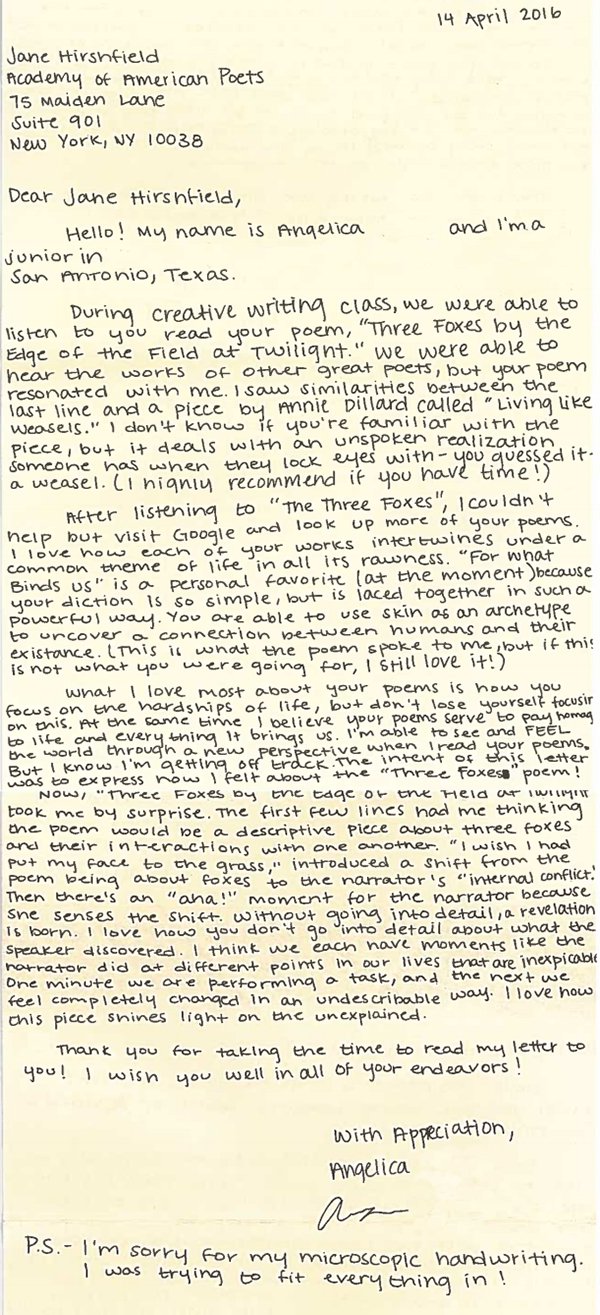 14 April 2016
Jane Hirshfield
Academy of American Poets
75 Maiden Lane
Suite 901
New York, NY 10038
Dear Jane Hirshfield,
Hello! My name is Angelica and I'm a
junior in
San Antonio, Texas.
During creative writing class, we were able to
listen to you read your poem, "Three Foxes by the
Edge of the Field at Twilight." We were able to
hear the works of other great poets, but your poem
resonated with me. I saw similarities between the
last line and a piece by Annie Dillard called "Living like
Weasels." I don't know if you're familiar with the
piece, but it deals with an unspoken realization
someone has when they lock eyes with- you guessed it-
a weasel. (I highly recommend if you have time!)
After listening to "The Three Foxes", I couldn't
help but visit Google and look up more of your poems.
I love how each of your works intertwines under a
common theme of life in all its rawness. "For what
Binds us" is a personal favorite (at the moment) because
your diction is so simple, but is laced together in such a
powerful way. You are able to use skin as an archetype
to uncover a connection between humans and their
existance. (This is what the poem spoke to me, but if this
is not what you were going for, I still love it!)
What I love most about your poems is how you
focus on the hardships of life, but don't lose yourself focusin
on this. At the same time I believe your poems serve to pay homag
to life and everything it brings us. I'm able to see and FEEL
the world through a new perspective when I read your poems.
But I know I'm getting off track. The intent of this letter
was to express how I felt about the "Three Foxes" poem!
Now, "Three Foxes by the Edge of the Field at Twilight
took me by surprise. The first few lines had me thinking
the poem would be a descriptive piece about three foxes
and their interactions with one another. "I wish I had
put my face to the grass," introduced a shift from the
poem being about foxes to the narrator's "internal conflict."
Then there's an "aha!" moment for the narrator because
she senses the shift. Without going into detail, a revelation
is born. I love how you don't go into detail about what the
speaker discovered. I think we each have moments like the
narrator did at different points in our lives that are inexpicable
One minute we are performing a task, and the next we
feel completely changed in an undescribable way. I love how
this piece shines light on the unexplained.
Thank you for taking the time to read my letter to
you! I wish you well in all of your endeavors!
With Appreciation,
Angelica
P.S.- I'm sorry for my microscopic handwriting.
I was trying to fit everything in!